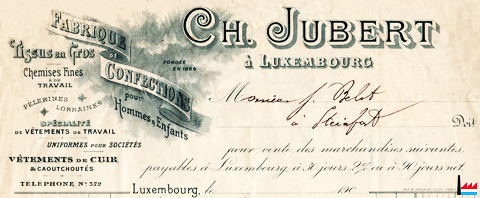 FABRIQUE
DE
CONFECTIONS
pour
Hommes & Enfants
Tissus en Gros
Chemises Fines
& DE
TRAVAIL
PÈLERINES LORRAINES
SPÉCIALITÉ
DE VÊTEMENTS DE TRAVAIL
UNIFORMES POUR SOCIÉTÉS
VÊTEMENTS DE CUIR
& CAOUTCHOUTÉS
TELEPHONE No 572
CH. JUBERT
à LUXEMBOURG
FONDÉE
EN 1869
Monsieur J.
à Steinfort
Doit
pour vente des marchandises suivantes,
payables à Luxembourg à 30 jours 2% ou à 90 jours net.
Luxembourg, le 190